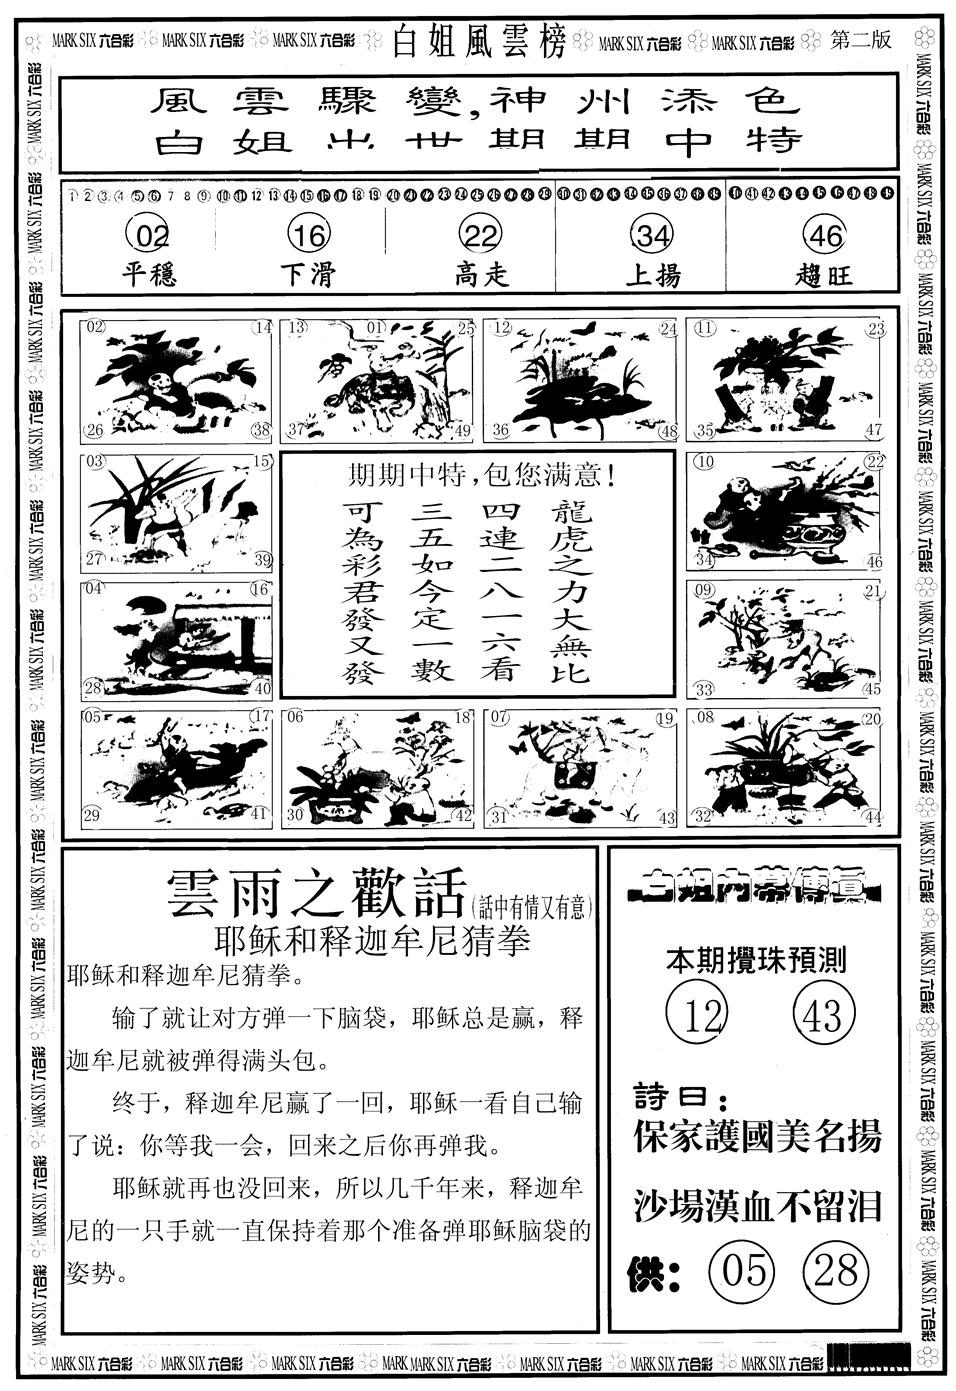 MARK SIX 六合彩 MARK SIX 六合彩 MARK SIX 六合彩 白姐風雲榜 MARK SIX 六合彩 MARK SIX 六合彩 第二版
風雲驟變,神州添色
白姐出世期期中特
1 2 3 4 5 6 7 8 9 10 11 12 13 14 15 16 17 18 19 20 21 22 23 24 25 26 27 28 29 30 31 32 33 34 35 36 37 38 39 40 41 42 43 44 45 46 47 48 49
02 16 22 34 46
平穩 下滑 高走 上揚 趨旺
02 14 13 01 25 12 24 11 23
26 38 37 49 36 48 35 47
03 15
27 39
04 16
28 40
期期中特,包您满意!
龍虎之力大無比
四連二八一六看
三五如今定一數
可為彩君發又發
10 22
34 46
09 21
33 45
05 17 06 18 07 19 08 20
29 41 30 42 31 43 32 44
雲雨之歡話(話中有情又有意)
耶稣和释迦牟尼猜拳
耶稣和释迦牟尼猜拳。
输了就让对方弹一下脑袋，耶稣总是赢，释
迦牟尼就被弹得满头包。
终于，释迦牟尼赢了一回，耶稣一看自己输
了说：你等我一会，回来之后你再弹我。
耶稣就再也没回来，所以几千年来，释迦牟
尼的一只手就一直保持着那个准备弹耶稣脑袋的
姿势。
白姐内幕傳真
本期攪珠預測
12 43
詩曰：
保家護國美名揚
沙場漢血不留泪
供： 05 28
MARK SIX 六合彩 MARK SIX 六合彩 MARK SIX 六合彩 MARK MARK SIX 六合彩 MARK SIX 六合彩 MARK SIX 六合彩 MARK SIX 六合彩